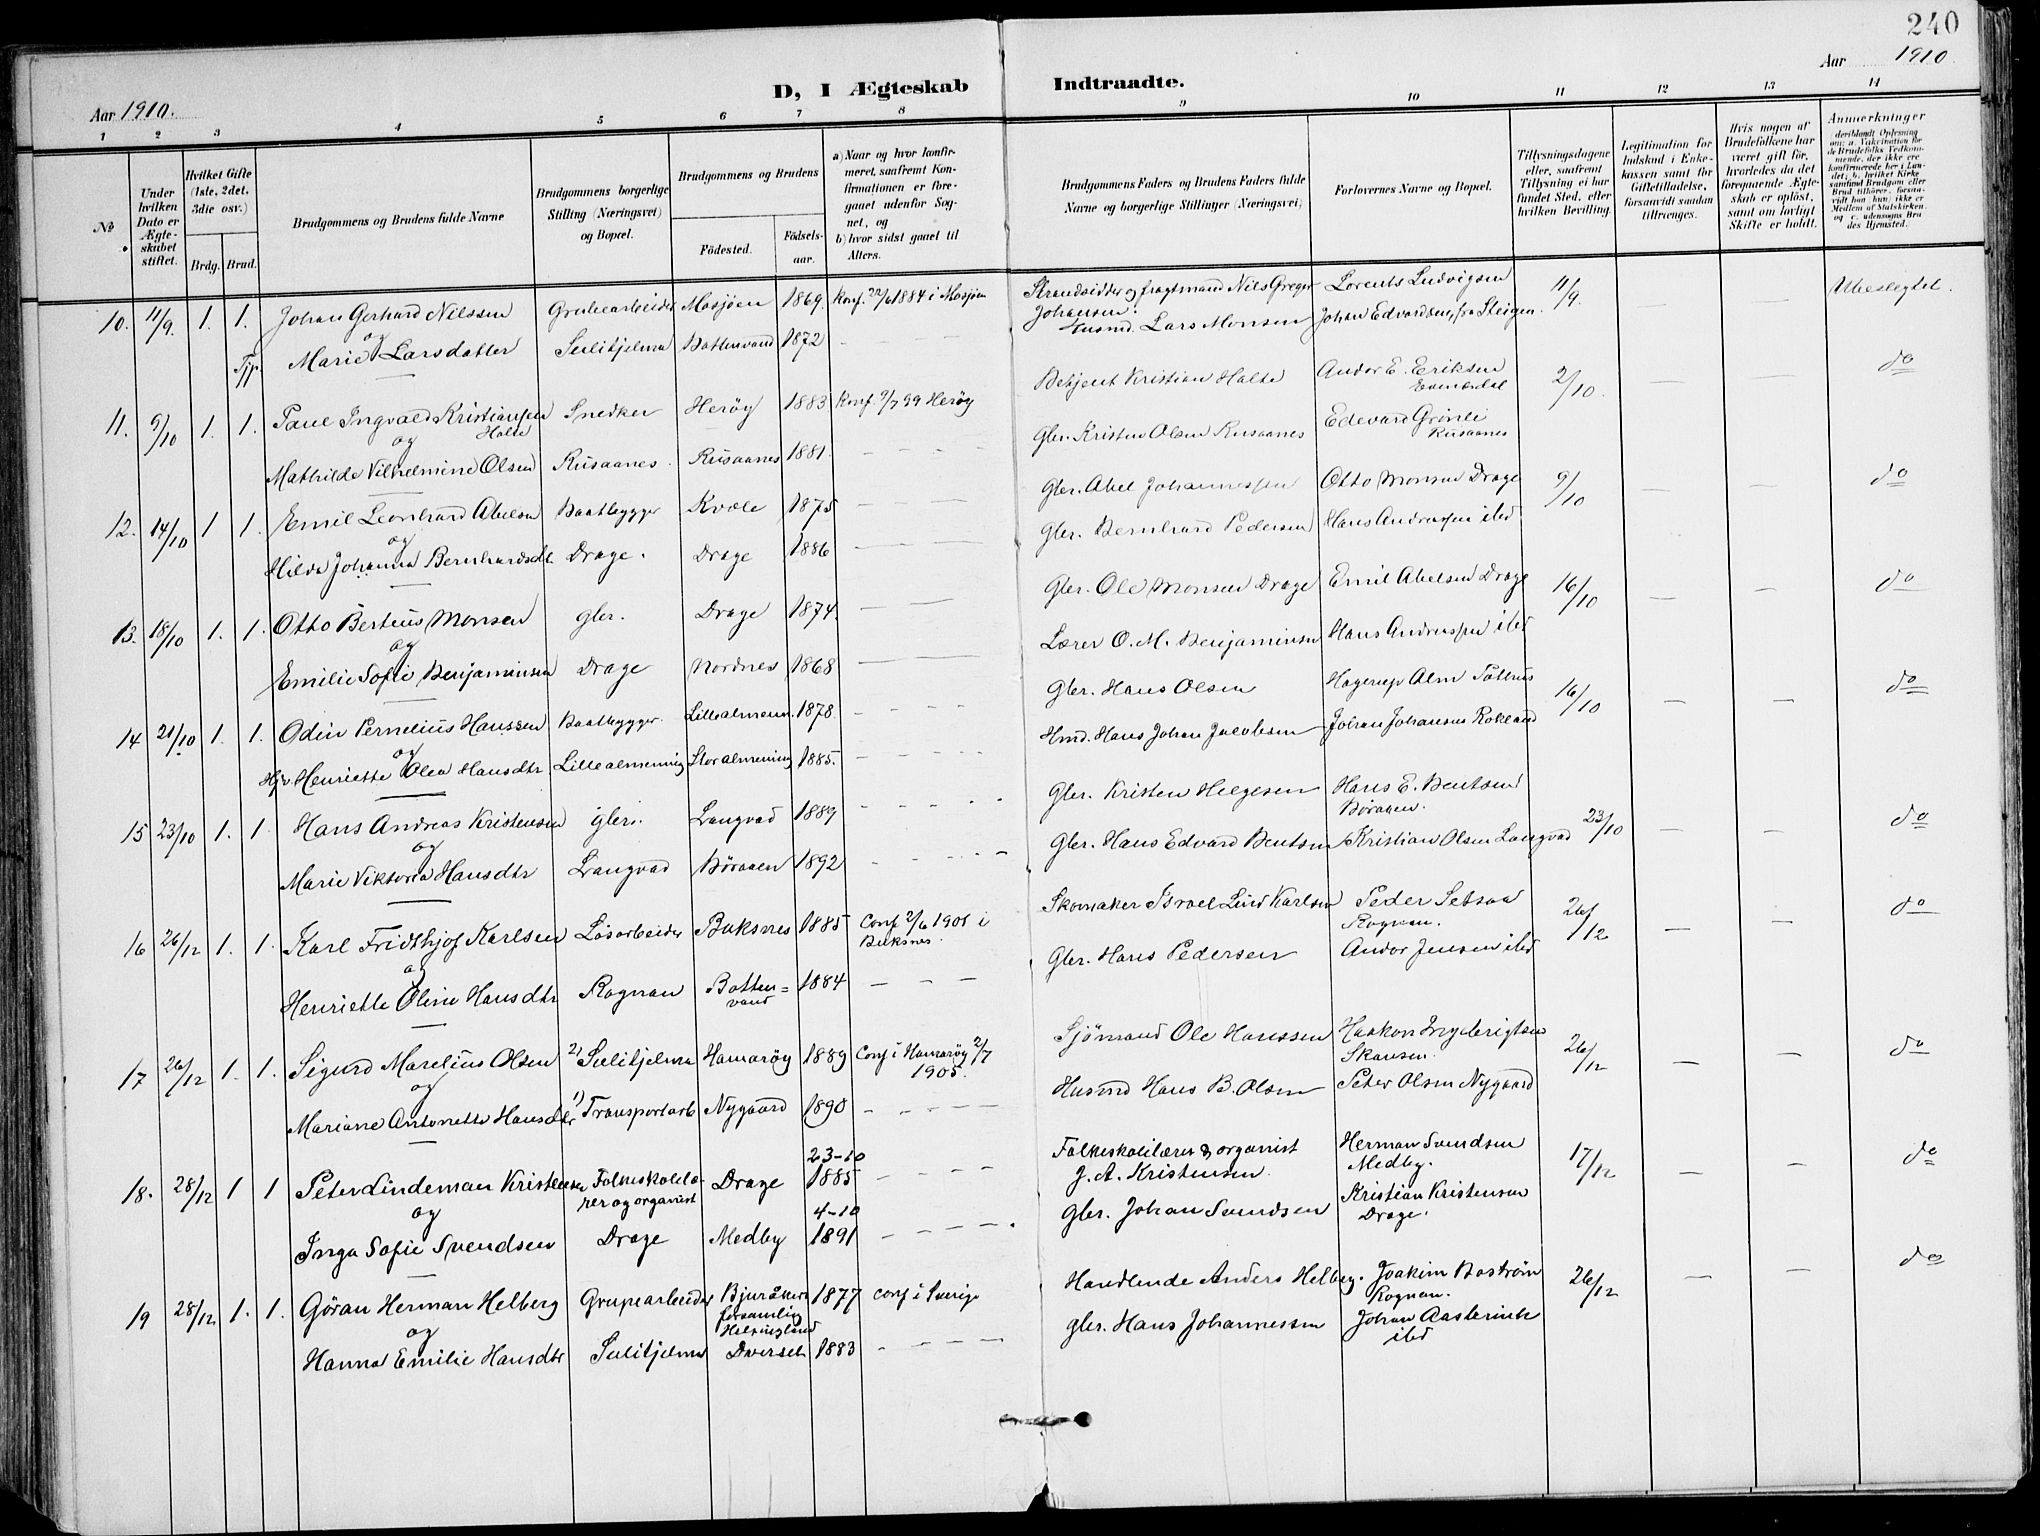 240
Aar 1910.
Aar 1910.
D, I Ægteskab Indtraadte.
1 2 3 4 5 6 7 8 9 10 11 12 13 14
No
Under hvilken Dato er Ægteskabet stiftet.
Hvilket Gifte (1ste, 2det, 3die osv.)
Brdg. Brud.
Brudgommens og Brudens fulde Navne
Brudgommens borgerlige Stilling (Næringsvei) og Bopæl.
Brudgommens og Brudens
Födested.
Födselsaar.
a) Naar og hvor konfirmeret, saafremt Konfirmationen er foregaaet udenfor Sognet, og
b) hvor sidst gaaet til Alters.
Brudgommens Faders og Brudens Faders fulde Navne og borgerlige Stillinger (Næringsvei)
Forlovernes Navne og Bopæl.
Tillysningsdagene eller, saafremt Tillysning ei har fundet Sted, efter hvilken Bevilling.
Legitimation for Indskud i Enkekassen samt for Giftetilladelse, forsaavidt saadan tiltrænges.
Hvis nogen af Brudefolkene har været gift før, hvorledes da det foregaaende Ægteskab er oplöst, samt om lovligt Skifte er holdt.
Anmerkninger
deriblandt Oplysning om: a. Vakcination for de Brudefolks Vedkommende, der ikke ere konfirmerede her i Landet; b. hvilket Kirkesamfund Brudgom eller Brud tilhörer, forsaavidt han/hun ikke er Medlem af Statskirken, og c. udensogns Brudes Hjemsted.
10. 11/9. 1. 1. Johan Gerhard Nilssen Grubearbeider Mosjøen 1869. Konf. 22/6 1884 i Mosjøen Strandsidder og fragtmand Nils Greger Johansen. Lorents Ludvigsen 11/9. — — Ubeslegtet.
og
Tjp. Marie Larsdatter Sulitjelma Bottenvand 1872 — — — Husmd. Lars Monsen Johan Edvardsen, fra Steigen.
11. 9/10 1. 1. Paul Ingvald Kristiansen Holte Snedker Herøy 1883 Konf. 9/7 99 Herøy Betjent Kristian Holte Andor E. Eriksen 2/10. — — do
og
Mathilde Vilhelmine Olsen Rusaanes. Rusaanes 1881. — — — Gbr. Kristen Olsen Rusaanes Edevard Grønli Rusaanes
12. 14/10 1 1. Emil Leonhard Abelsen Baatbygger Kvæle 1875 — — Gbr. Abel Johannessen Otto Monsen Drage 9/10 — — do
og
Hilda Johanna Bernhardsdtr. Drage. Drage 1886 — — — Gbr. Bernhard Pedersen Hans Andreassen ibd.
13. 18/10 1. 1. Otto Bertius Monsen gbr. Drage 1874. — — Gbr. Ole Monsen Drage Emil Abelsen Drage 16/10 — — do
og
Emilie Sofie Benjaminsen Drage Nordnes 1868 — — Lærer O. M. Benjaminsen Hans Andreassen ibd
14 21/10 1. 1. Odin Pernelius Hanssen Baatbygger. Lillealmenn. 1878. — — — Gbr. Hans Olsen Hagerup Alm Saltnes 16/10 — — do
og
Henriette Olea Hansdtr. Lillealmenning Storalmenning 1885. — — — Hmd. Hans Johan Jacobsen Johan Johansen Rokland
15 23/10 1. 1. Hans Andreas Kristensen gbr. Langvad 1889 — — — Gbr. Kristen Helgesen Hans E. Bentsen Böraaen. 23/10 — — do
og
Marie Viktoria Hansdtr Langvad Böraaen 1892 — — — Gbr. Hans Edvard Bentsen Kristian Olsen Langvad
16 26/12 1. 1. Karl Fridthjof Karlsen Løsarbeider Buksnes 1885 Conf 2/6 1901 i Buksnes. Skomaker Israel Lind Karlsen Peder Setsaa Rognan. 26/12 — — do
og
Henriette Oline Hansdtr Rognan Bottenvand 1884 — — — Gbr. Hans Pedersen Andor Jensen ibd
17 26/12 1. 1. Sigurd Marelius Olsen 2) Sulitjelma Hamarøy 1889 Conf i Hamarøy 2/7 1905. Sjömand Ole Hanssen Haakon Ingebrigtsen Skansen. 26/12 — — do
og
Mariane Antonette Hansdtr 1) Transportarb Nygaard 1890 — — — Husmd Hans B. Olsen Peter Olsen Nygaard
18. 28/12 1 1 Peter Lindeman Kristensen Folkeskolelærer og organist Drage 23-10 1885 — — — Folkeskolelærer & organist J. A. Kristensen Herman Svendsen Medby. 17/12 — — do
og
Inga Sofie Svendsen Drage Medby 4-10 1891 — — — Gbr. Johan Svendsen Kristian Kristensen Drage.
19 28/12 1. 1. Göran Herman Helberg Grubearbeider Bjuråkers forsamling Helsingland 1877 Conf i Sverige Handlende Anders Helberg. Joakim Boström Rognan. 26/12 — — do
og
Hanna Emilie Hansdtr Sulitjelma Dverset 1883 — — — gbr. Hans Johannessen Johan Aasterink ibd